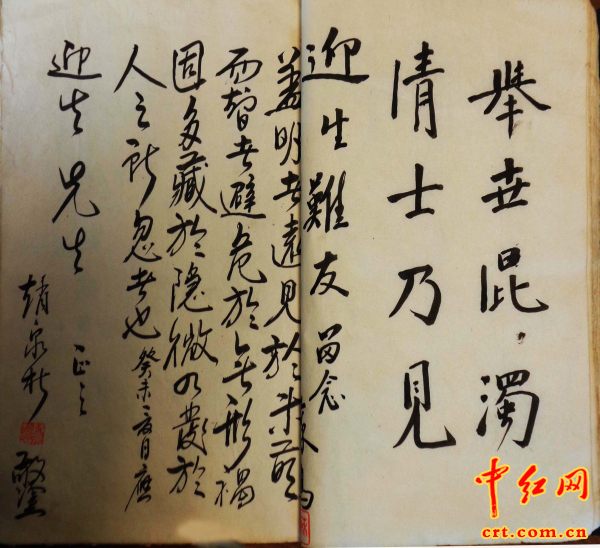 舉世混濁
清士乃見
迎生難友 留念
蓋明者遠見於未萌
而智者避危於無形禍
固多藏於隱微而發於
人之所忽者也 癸未月應
迎生先生 正之
趙泉
中红网
crt.com.cn